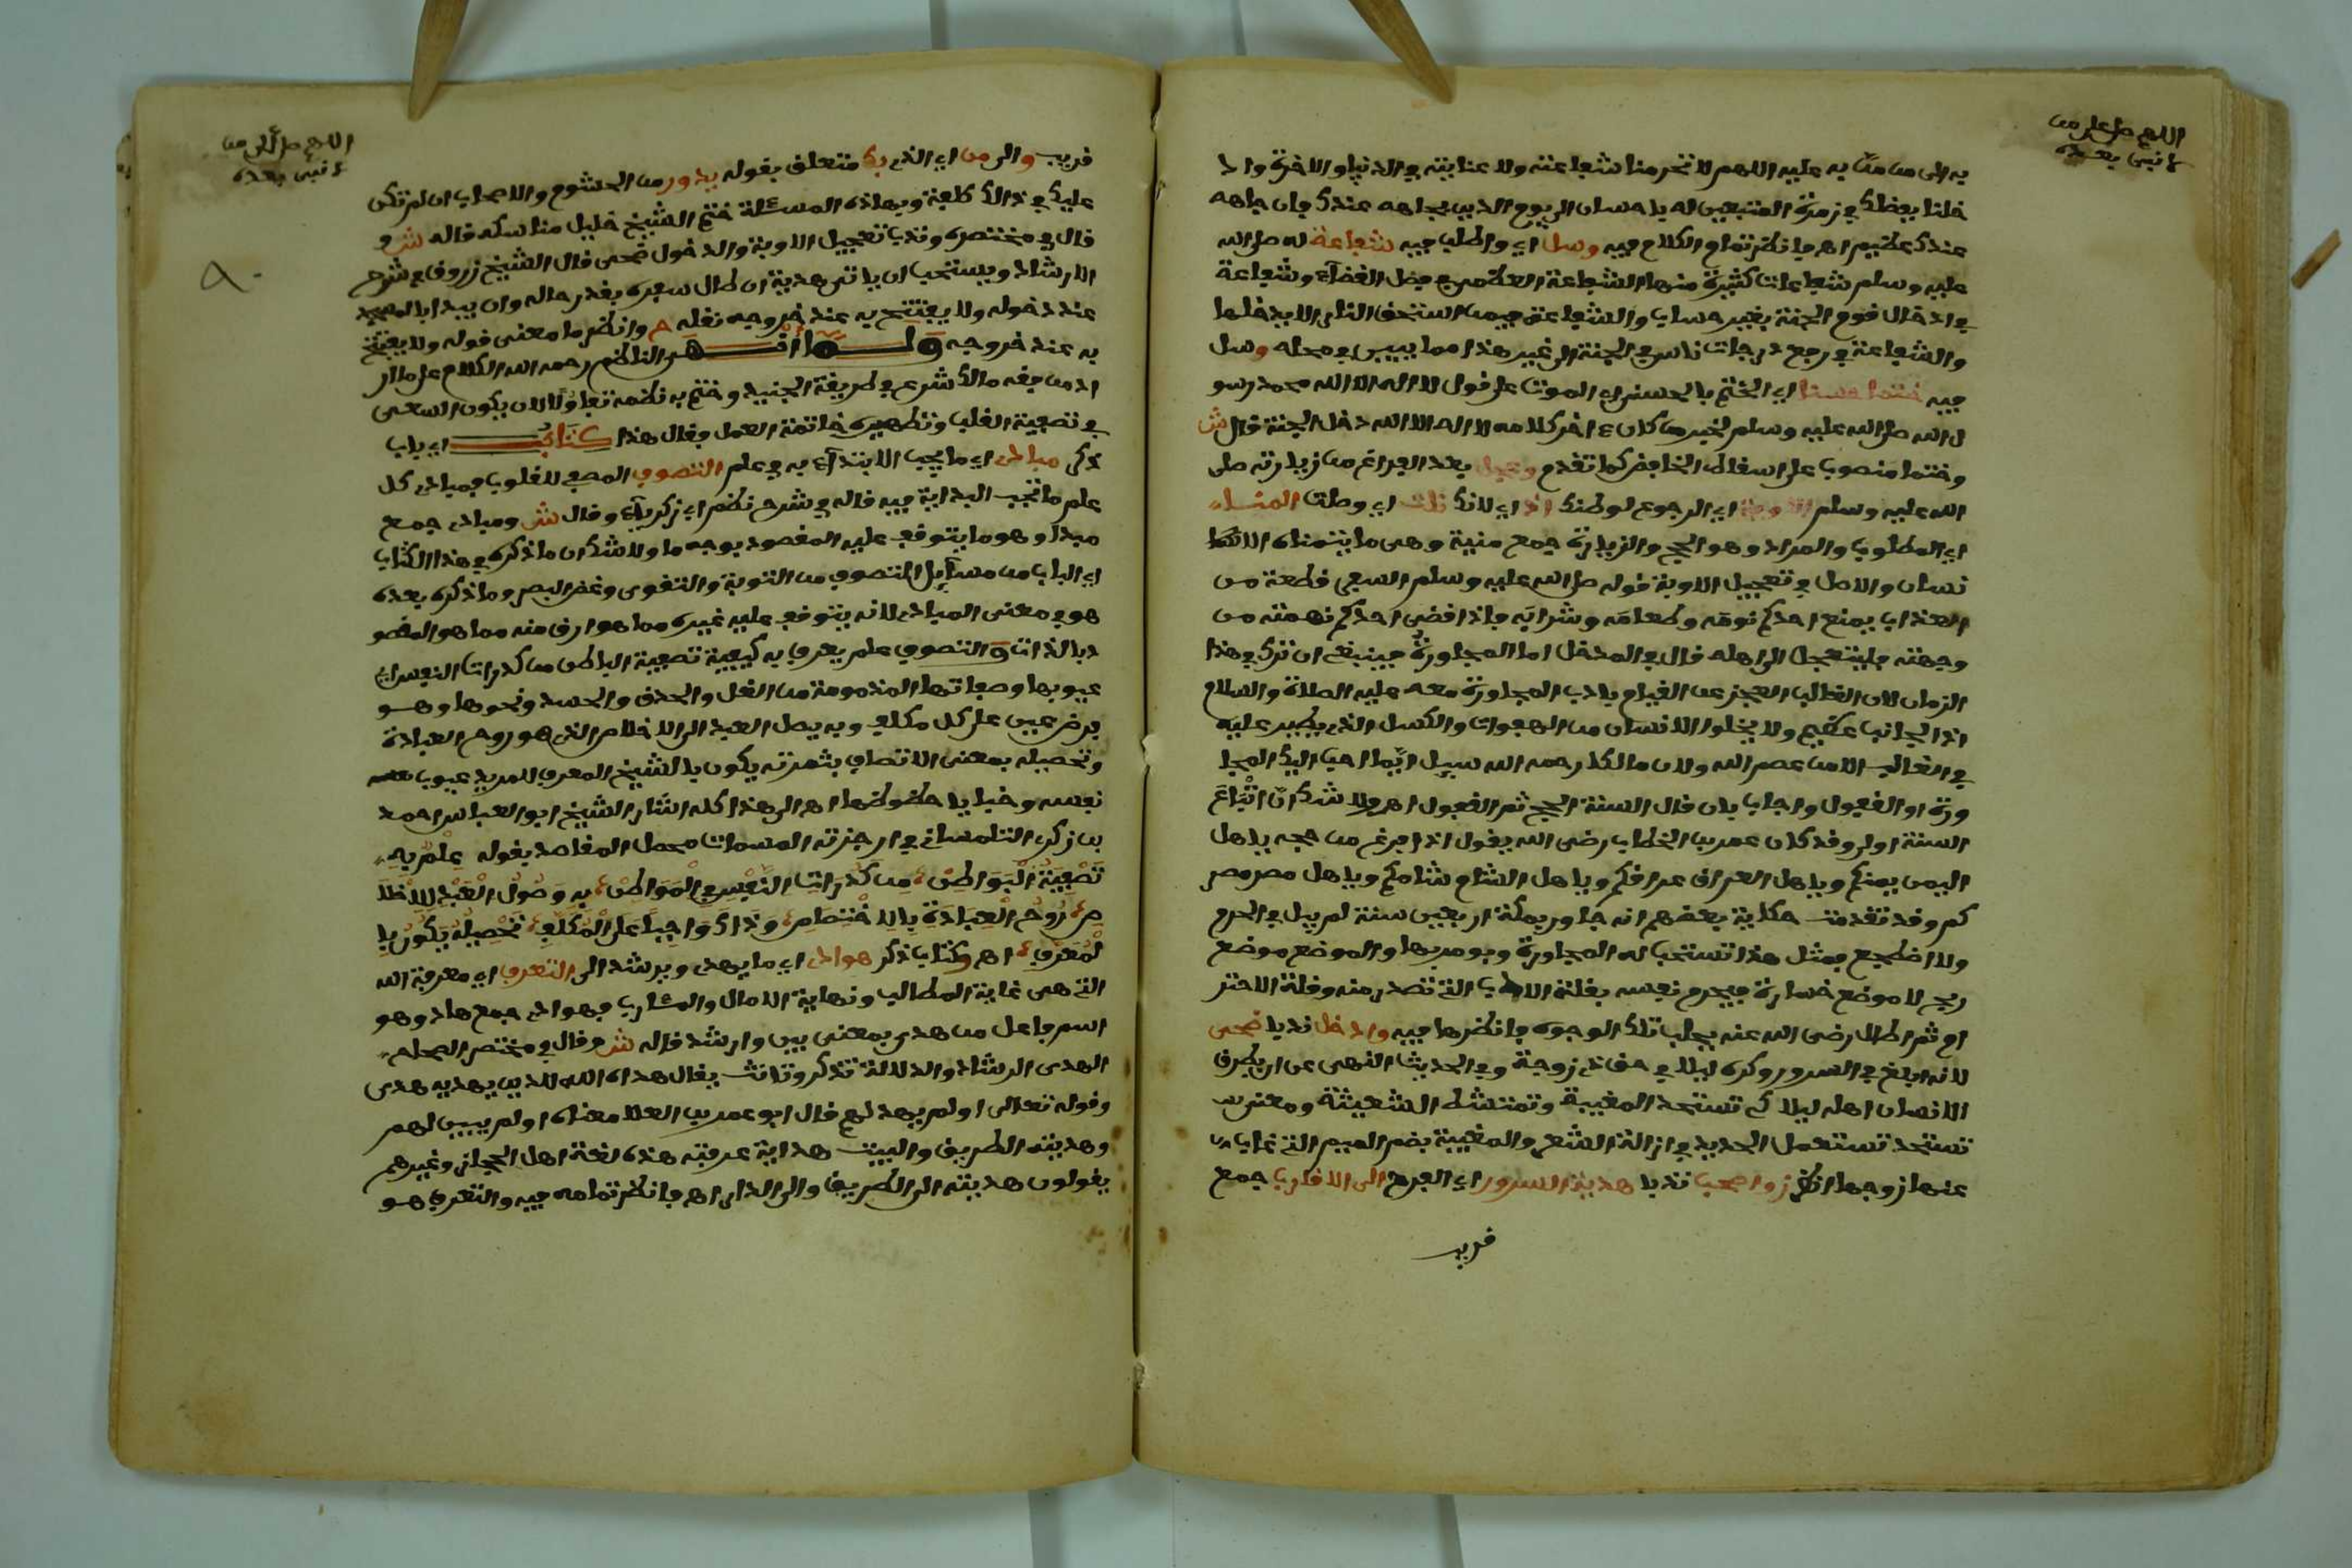 اللهم صل على من
لا نبي بعده
به الى من منّ به عليه اللهم لا تحرمنا شفاعته ولا عنايته في الدنيا والاخرة واد
خلنا بفضلك في زمرة المتبعين له باحسان الى يوم الدين بجاهه عندك فان جاهه
عندك عظيم اهـ فانظر تمام الكلام فيه وسل اي واطلب فيه شفاعة له صلى الله
عليه وسلم شفاعات كثيرة منها الشفاعة العظمى في فصل القضآء وشفاعة
في ادخال قوم الجنة بغير حساب والشفاعة فيمن استحق النار ان لا يدخلها
والشفاعة في رفع درجات ناس في الجنة الى غير هذا مما يبين في محله وسل
فيه ختما حسنا اي الختم بالحسنى اي الموت على قول لا اله الا الله محمد رسو
ل الله صلى الله عليه وسلم لخبر من كان ءاخر كلامه لا اله الا الله دخل الجنة قال ش
وختما منصوب على اسقاط الخافض كما تقدم وعجل بعد الفراغ من زيارته صلى
الله عليه وسلم الاوبة اي الرجوع لوطنك اذ اي لانك نلت اي وصلت المنى
اي المطلوب والمراد وهو الحج والزيارة جمع منية وهي ما يتمناه الا
نسان والاصل في تعجيل الاوبة قوله صلى الله عليه وسلم السفر قطعة من
العذاب يمنع احدكم نومه وطعامه وشرابه فاذا قضى احدكم نهمته من
وجهته فليتعجل الى اهله قال في المدخل اما المجاورة فينبغي ان تترك في هذا
الزمان لان الغالب العجز عن القيام بادب المجاورة معه عليه الصلاة والسلام
اذ الجانب عظيم ولا يخلوا الانسان من الهفوات والكسل الذي يطير عليه
في الغالب الا من عصم الله ولان مالكا رحمه الله سيل ايما احب اليك المجا
ورة او القفول واجاب بان قال السنة الحج ثم القفول اهـ ولا شك ان اتباع
السنة اولى وقد كان عمر بن الخطاب رضي الله يقول اذا فرغ من حجه ياهل
اليمن يمنكم وياهل العراق عراقكم وياهل الشام شامكم وياهل مصر مصر
كم وقد تقدمت حكاية بعضهم انه جاور بمكة اربعين سنة لم يبل في الحرم
ولا اضطجع فمثل هذا تستحب له المجاورة ويومر بها والموضع موضع
ربح لا موضع خسارة فيحرم نفسه بقلة الادب التي تصدر منه وقلة الاحتر
ام ثم اطال رضي الله عنه بجلب تلك الوجوه فانظرها فيه وادخل ندبا ضحى
لانه ابلغ في السرور وكره ليلا في حق ذي زوجة وفي الحديث النهي عن ان يطرق
الانسان اهله ليلا كي تستحد المغيبة وتمتشط الشعيثة ومعنى
تستحد تستعمل الحديد في ازالة الشعر والمغيبة بضم الميم التي غاب
عنها زوجها انظر زواصحب ندبا هدية السرور اي الفرح الى الاقارب جمع
قريب
اللهم صل على من
لا نبي بعده
قريب والى من اي الذي بك متعلق بقوله يدور من الحشوم والاصحاب ان لم تكن
عليك في ذالك كلفة وبهاذه المسئلة ختم الشيخ خليل مناسكه قاله ش و
قال في مختصره وندب تعجيل الاوبة والدخول ضحى قال الشيخ زروق في شرح
الارشاد ويستحب ان ياتي هدية ان طال سفره بقدر حاله وان يبدا بالمسجد
عند دخوله ولا يفتتح به عند خروجه نقله ح وانظر ما معنى قوله ولا يفتتح
به عند خروجه ولما انهى الناظم رحمه الله الكلام على ما ار
اد من فقه مالك شرع في طريقة الجنيد وختم به نظمه تفاؤلا لان يكون السعي
في تصفية القلب وتطهيره خاتمة العمل وقال هذا كتاب اي باب
ذكر مبادئ اي ما يجب الابتداء به في علم التصوف المصفي للقلوب فمبادئ كل
علم ما تجب البداية فيه قاله في شرح نظم ابي زكرياء وقال ش ومبادئ جمع
مبدا وهو ما يتوقف عليه المقصود بوجه ما ولا شك ان ما ذكره في هذا الكتاب
اي الباب من مسآيل التصوف من التوبة والتقوى وغض البصر وما ذكره بعده
هو في معنى المبادئ لانه يتوقف عليه غيره مما هو ارق منه مما هو المقصو
د بالذات والتصوف علم يعرف به كيفية تصفية الباطن من كدرات النفس اي
عيوبها وصفاتها المذمومة من الغل والحقد والحسد ونحوها وهو
فرض عين على كل مكلف وبه يصل العبد الى الاخلاص الذي هو روح العبادة
وتحصيله بمعنى الاتصاف بثمرته يكون بالشيخ المعرف للمريد عيوب
نفسه وخبايا حظوظها اهـ الى هذا كله اشار الشيخ ابو العباس احمد
بن زكري التلمساني في ارجزته المسمات محصل المقاصد بقوله علم به
تصفية البواطن من كدرات النفس في المواطن به وصول العبد للاخلا
ص روح العبادة بالاختصاص وذاك واجب على المكلف تحصيله يكون با
لمعرف اهـ وكتاب ذكر هوادي اي ما يهدي ويرشد الى التعرف اي معرفة الله
التي هي غاية المطالب ونهاية الامال والمئارب فهوادي جمع هاد وهو
اسم فاعل من هدى بمعنى بين وارشد قاله ش وقال في مختصر الصحاح
الهدى الرشاد والدلالة تذكر وتانث يقال هداه الله للدين يهديه هدى
وقوله تعالى اولم يهد لهم قال ابو عمر بن العلا معناه اولم يبين لهم
وهديته الطريق والبيت هداية عرفته هذه لغة اهل الحجاز وغيرهم
يقولون هديته الى الطريق والى الدار اهـ فانظر تمامه فيه والتعرف هو